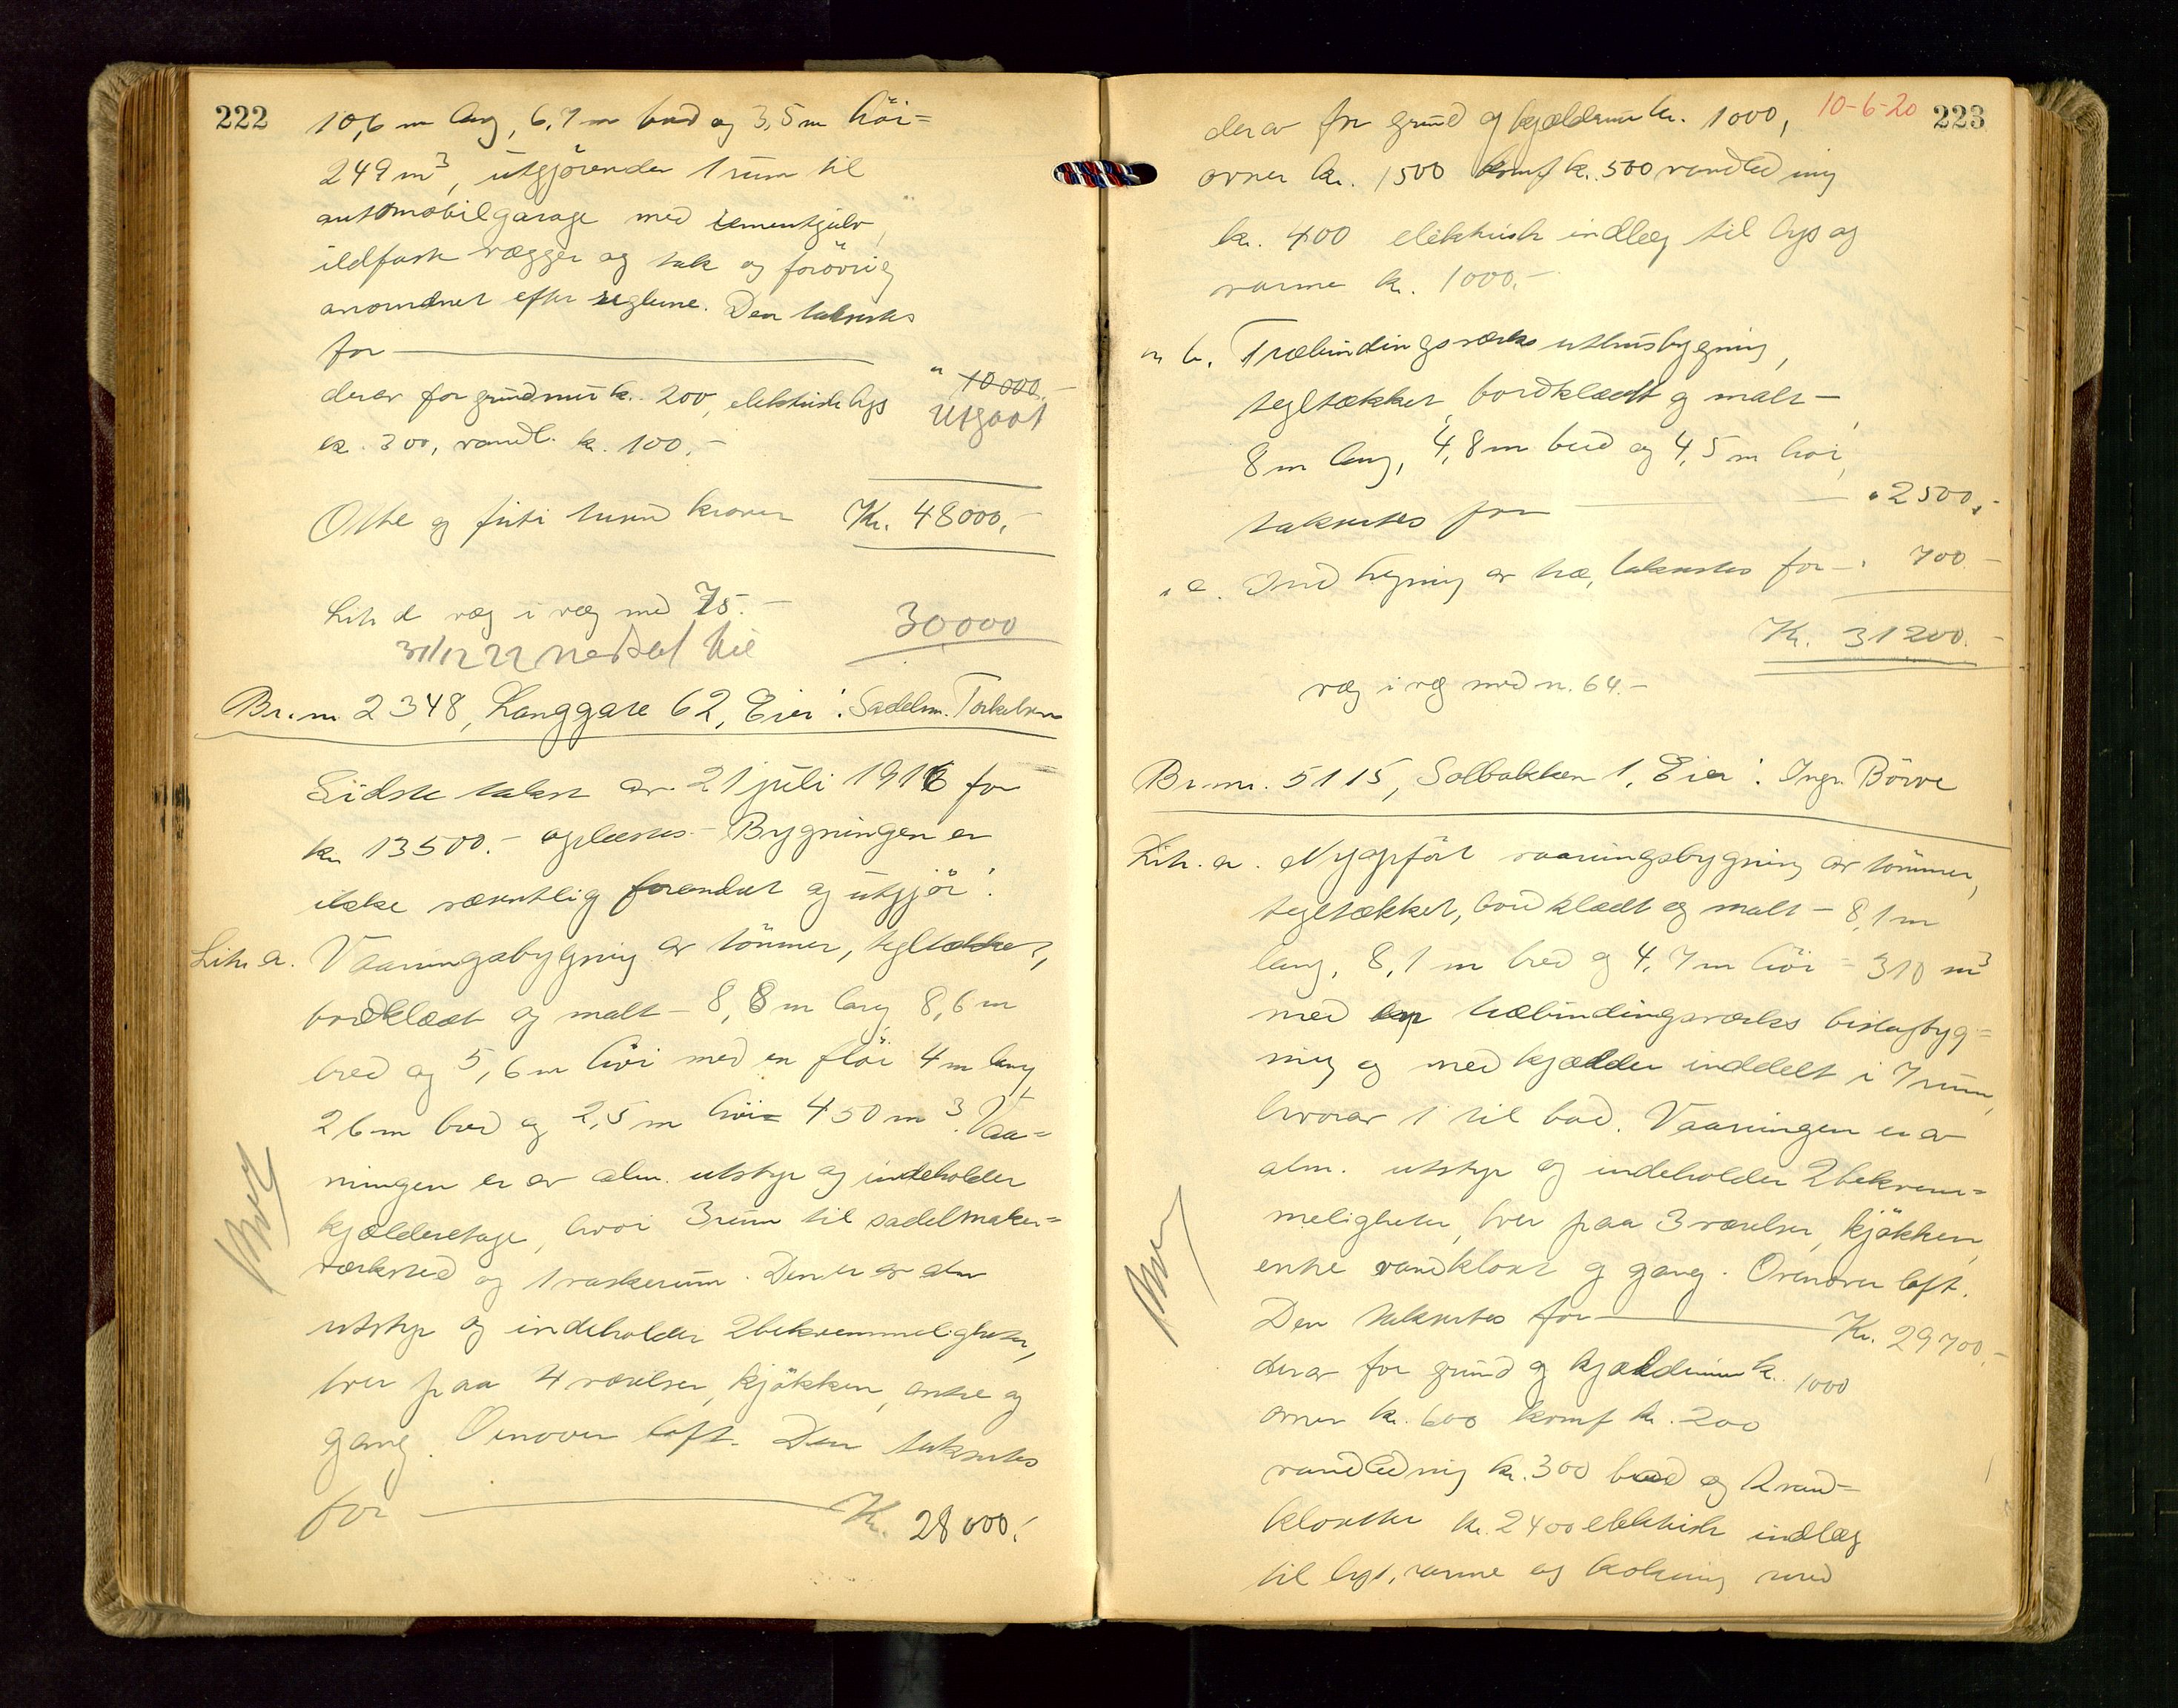 222
10,6 m lang, 6,7 m bred og 3,5 m höi =
249 m³, utgjörender 1 rum til
automobilgarage med cementgulv,
ildfaste vægger og tak og forövrig
anordnet efter reglerne. Den takseres
for — " 10 000.-
derav for grundmur kr. 200, elektrisk lys
Utgaat
kr. 300, vandl. kr. 100.-
Otte og förti tusend kroner Kr. 48000.-
Litr. d væg i væg med 75.-
31/12 22 nedsat til 30000
Br. nr. 2348, Langgate 62, Eier: Sadelm. Torkelsen
Sidste takst av 21 juli 1916 for
kr. 13500.- oplæstes - Bygningen er
ikke væsentlig forandret og utgjör:
Litr. a. Vaaningsbygning av tömmer, tegltækket,
bordklædt og malt - 8,8 m lang 8,6 m
bred og 5,6 m höi med en flöi 4 m lang,
2,6 m bred og 2,5 m höi = 450 m³. Vaa=
ningen er av alm. utstyr og indeholder
kjælderetage, hvori 3 rum til sadelmaker=
verksted og 1 vaskerum. Den er av alm
utstyr og indeholder 2 bekvemmeligheter,
hver paa 4 værelser, kjökken, entre og
gang. Ovenover loft. Den takseres
for — Kr. 28 000.-
10-6-20 223
derav for grund og kjældermur kr. 1000,
ovner kr. 1500 komf kr. 500 vandledning
kr. 400 elektrisk indlæg til lys og
varme kr. 1000.-
" b. Træbindingsverks uthusbygning,
tegltækket, bordklædt og malt -
8 m lang, 4,8 m bred og 4,5 m höi,
takseres for — " 2500.-
" c. Ind hegning av træ, takseres for - " 700.-
Kr. 31200.-
væg i væg med nr. 64.-
Br. nr. 5115, Solbakken 1, Eier: Ingr. Börve
Litr. a. Nyopfört vaaningsbygning av tömmer,
tegltækket, bordklædt og malt - 8,1 m
lang, 8,1 m bred og 4,7 m höi = 310 m³
med træbindingsverks bislagbyg=
ning og med kjælder inddelt i 7 rum,
hvorav 1 til bad. Vaaningen er av
alm. utstyr og indeholder 2 bekvem=
meligheter, hver paa 3 værelser, kjökken,
entre vandkloset og gang. Ovenover loft.
Den takseres for — Kr. 29700.-
derav for grund og kjældermur kr. 1000
ovner kr. 600 komf kr. 200
vandledning kr. 300 bad og 2 vand=
klosetter kr. 2400 elektrisk indlæg
til lys, varme og kokning med